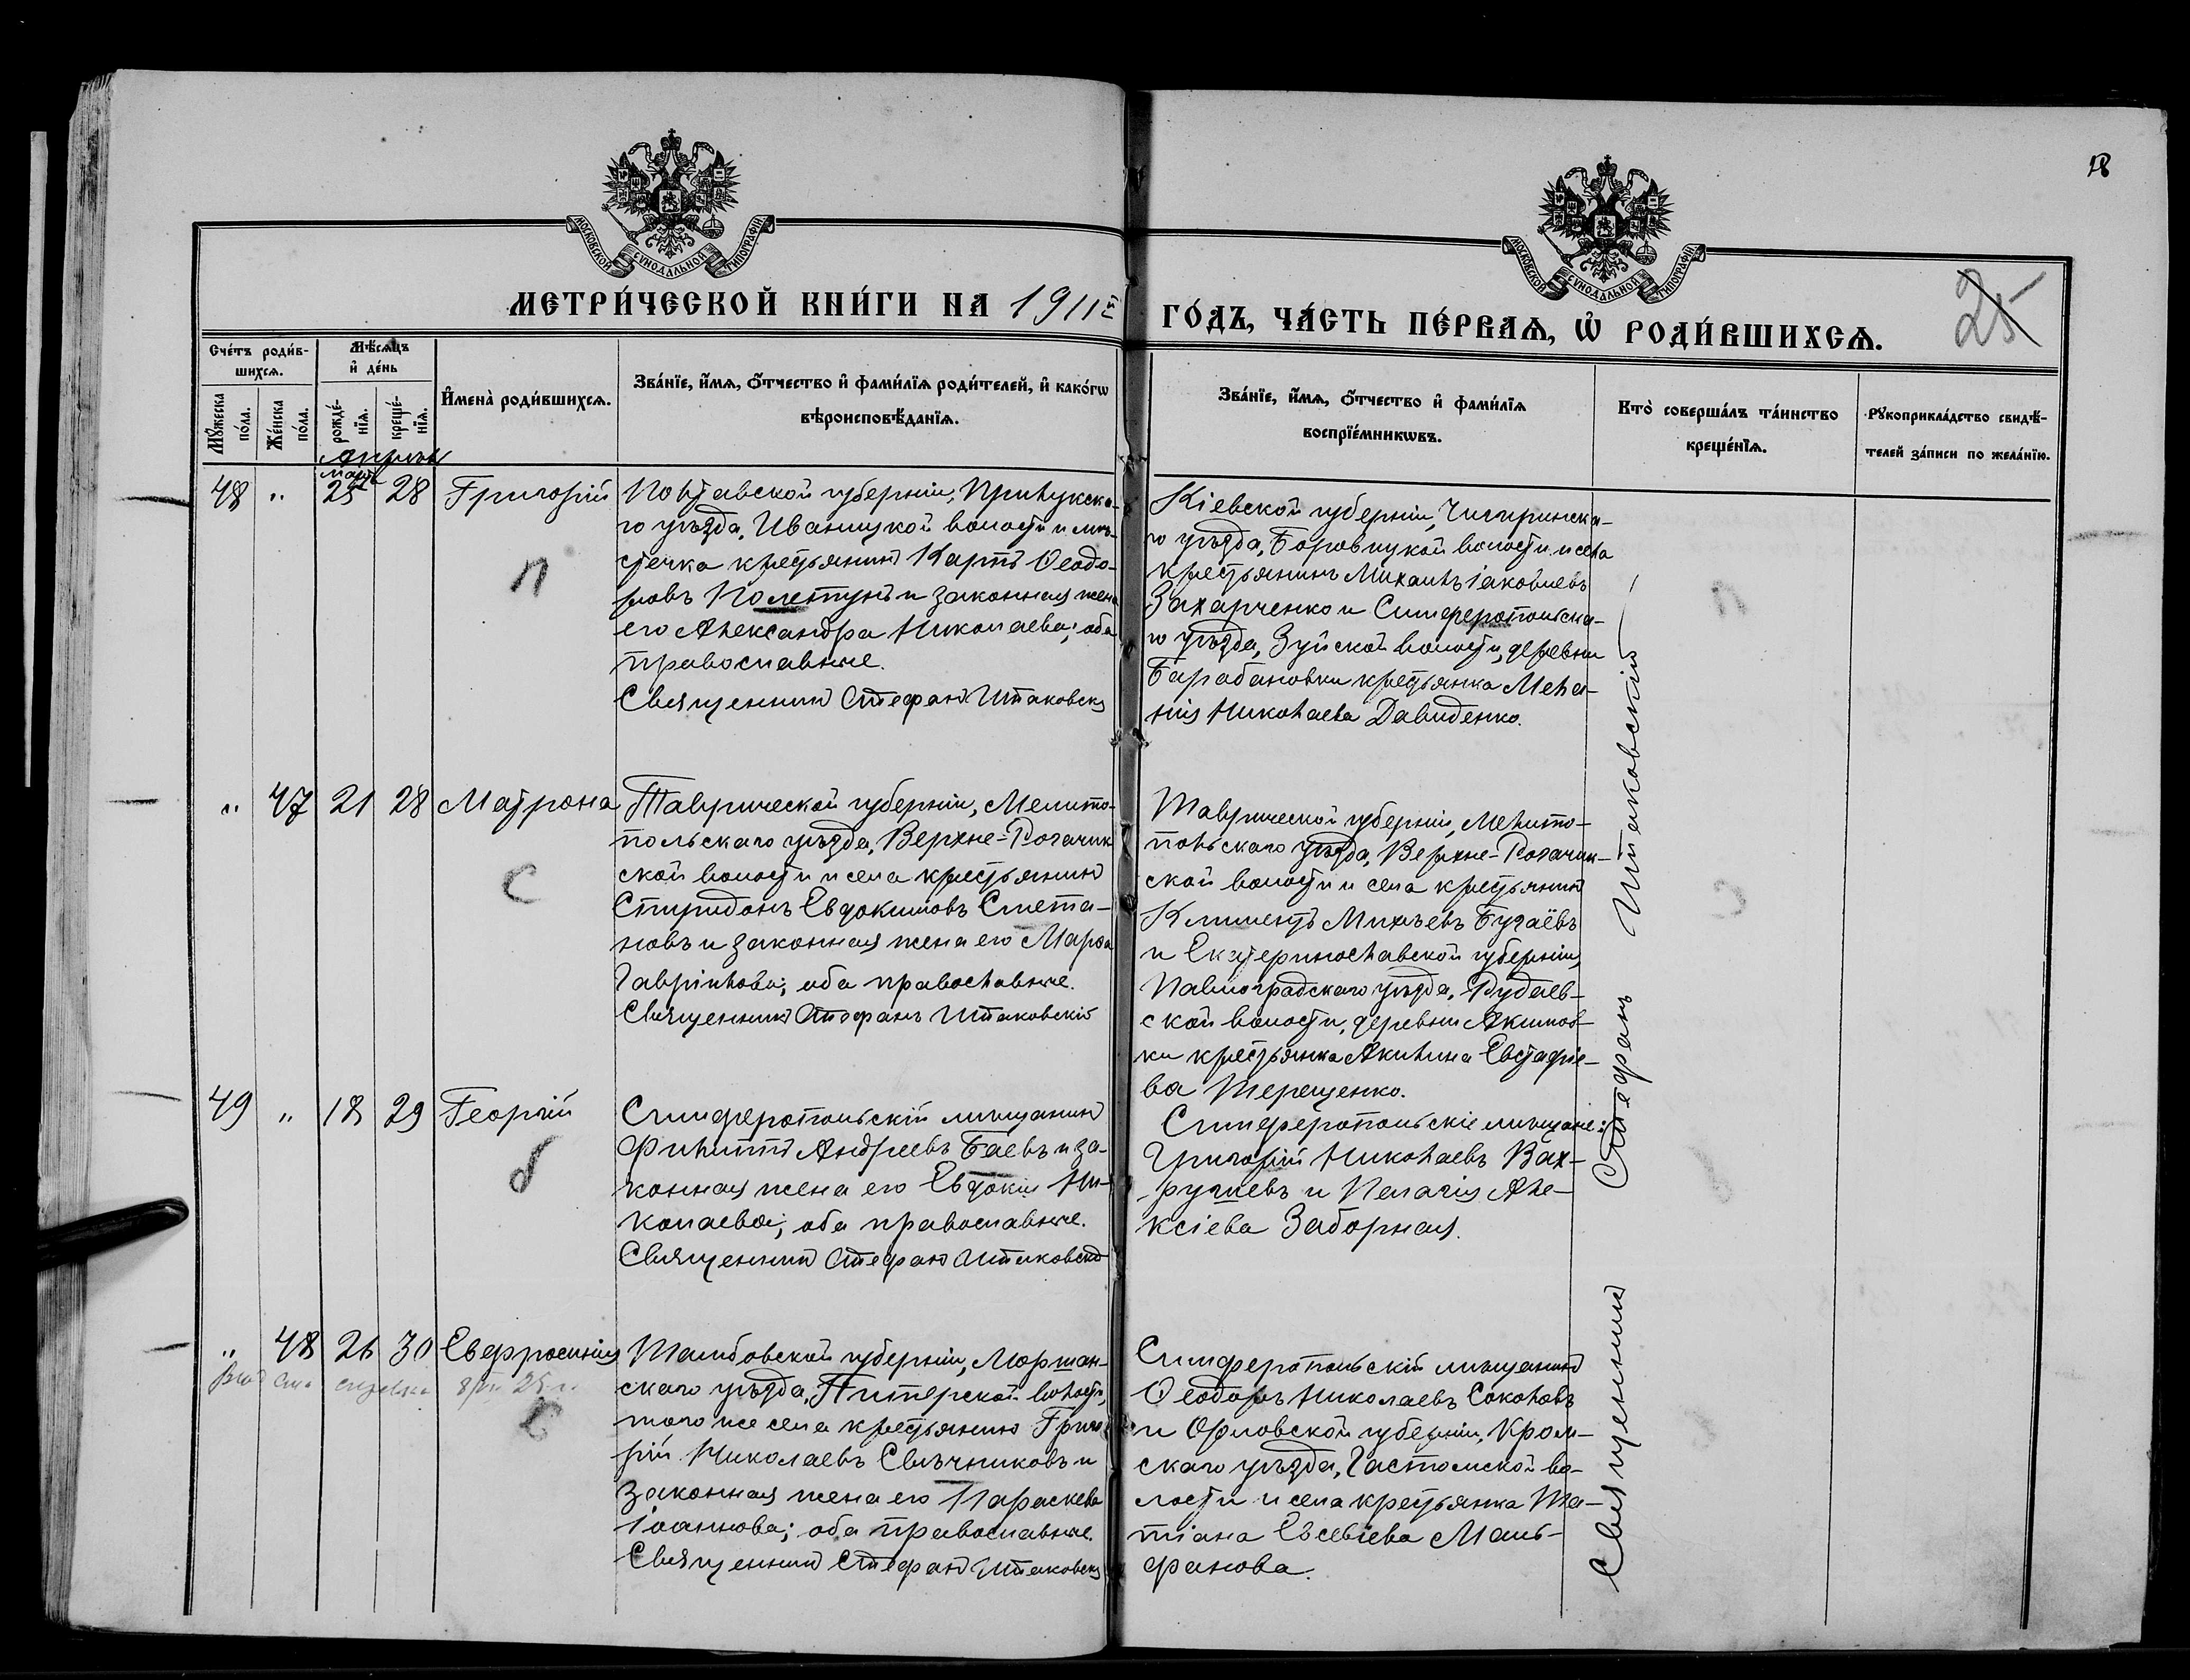 18
МОСКОВСКОЙ СУНОДАЛЬНОЙ ТИПОГРАФІИ
МОСКОВСКОЙ СУНОДАЛЬНОЙ ТИПОГРАФІИ
МЕТРИ́ЧЕСКОЙ КНИ́ГИ НА 1911й
ГО́ДЪ, ЧА́СТЬ ПЕ́РВАЯ, Ѡ РОДИ́ВШИХСЯ.
25
Сче́тъ роди́в-
шихся.
Мѣ́сяцъ
и де́нь
Му́жеска
по́ла.
Же́нска
по́ла.
рожде́-
нїя.
креще́-
нїя.
Имена̀ роди́вшихся.
Зва́нїе, и́мя, о́тчество и фами́лїя роди́телей, и како́гѡ
вѣроисповѣ́данїя.
Зва́нїе, и́мя, о́тчество и фами́лїя
воспрїе́мникѡвъ.
Кто̀ соверша́лъ та́инство
креще́нїя.
Рукоприкла́дство свидѣ́-
телей за́писи по жела́нїю.
мартъ
48 " 25 28 Григорій
п
Полтавской губерніи, Прилукска-
го уѣзда, Иваницкой волости и мѣ-
стечка крестьянинъ Карпъ Ѳеодо-
ровъ Полетунъ и законная жена
его Александра Николаева; оба
православные.
Священникъ Стефанъ Штаковскій
Кіевской губерніи, Чигиринска-
го уѣзда, Боровицкой волости и села
крестьянинъ Михаилъ Іаковлевъ
Захарченко и Симферопольска-
го уѣзда, Зуйской волости, деревни
Барабановки крестьянка Мела-
нія Николаева Давиденко.
" 47 21 28 Матрона
с
Таврической губерніи, Мелито-
польскаго уѣзда, Верхне-Рогачик
ской волости и села крестьянинъ
Спиридонъ Евдокимовъ Смета-
новъ и законная жена его Марѳа
Гавріилова; оба православные.
Священникъ Стефанъ Штаковскій
Таврической губерніи, Мелито-
польскаго уѣзда, Верхне-Рогачик-
ской волости и села крестьянинъ
Климентъ Михѣевъ Бугаёвъ
и Екатеринославской губерніи,
Павлоградскаго уѣзда, Рудаев-
ской волости, деревни Акимов-
ки крестьянка Акилина Евстафіе-
ва Терещенко.
49 " 18 29 Георгій
б
Симферопольскій мѣщанинъ
Филиппъ Андреевъ Баевъ и за-
конная жена его Евдокія Ни-
колаева; оба православные.
Священникъ Стефанъ Штаковскій
Симферопольскіе мѣщане:
Григорій Николаевъ Вах-
рушевъ и Пелагія Але-
ксіева Заборная.
" 48 26 30 Евфросинія
с
Тамбовской губерніи, Моршан-
скаго уѣзда, Питерской волости,
того же села крестьянинъ Григо
рій Николаевъ Свѣчниковъ и
законная жена его Параскева
Іоаннова; оба православные.
Священникъ Стефанъ Штаковскій
Симферопольскій мѣщанинъ
Ѳеодоръ Николаевъ Соколовъ
и Орловской губерніи, Кром-
скаго уѣзда, Гастомской во-
лости и села крестьянка Та-
тіана Евсевіева Маль-
фанова.
Священникъ Стефанъ Штаковскій